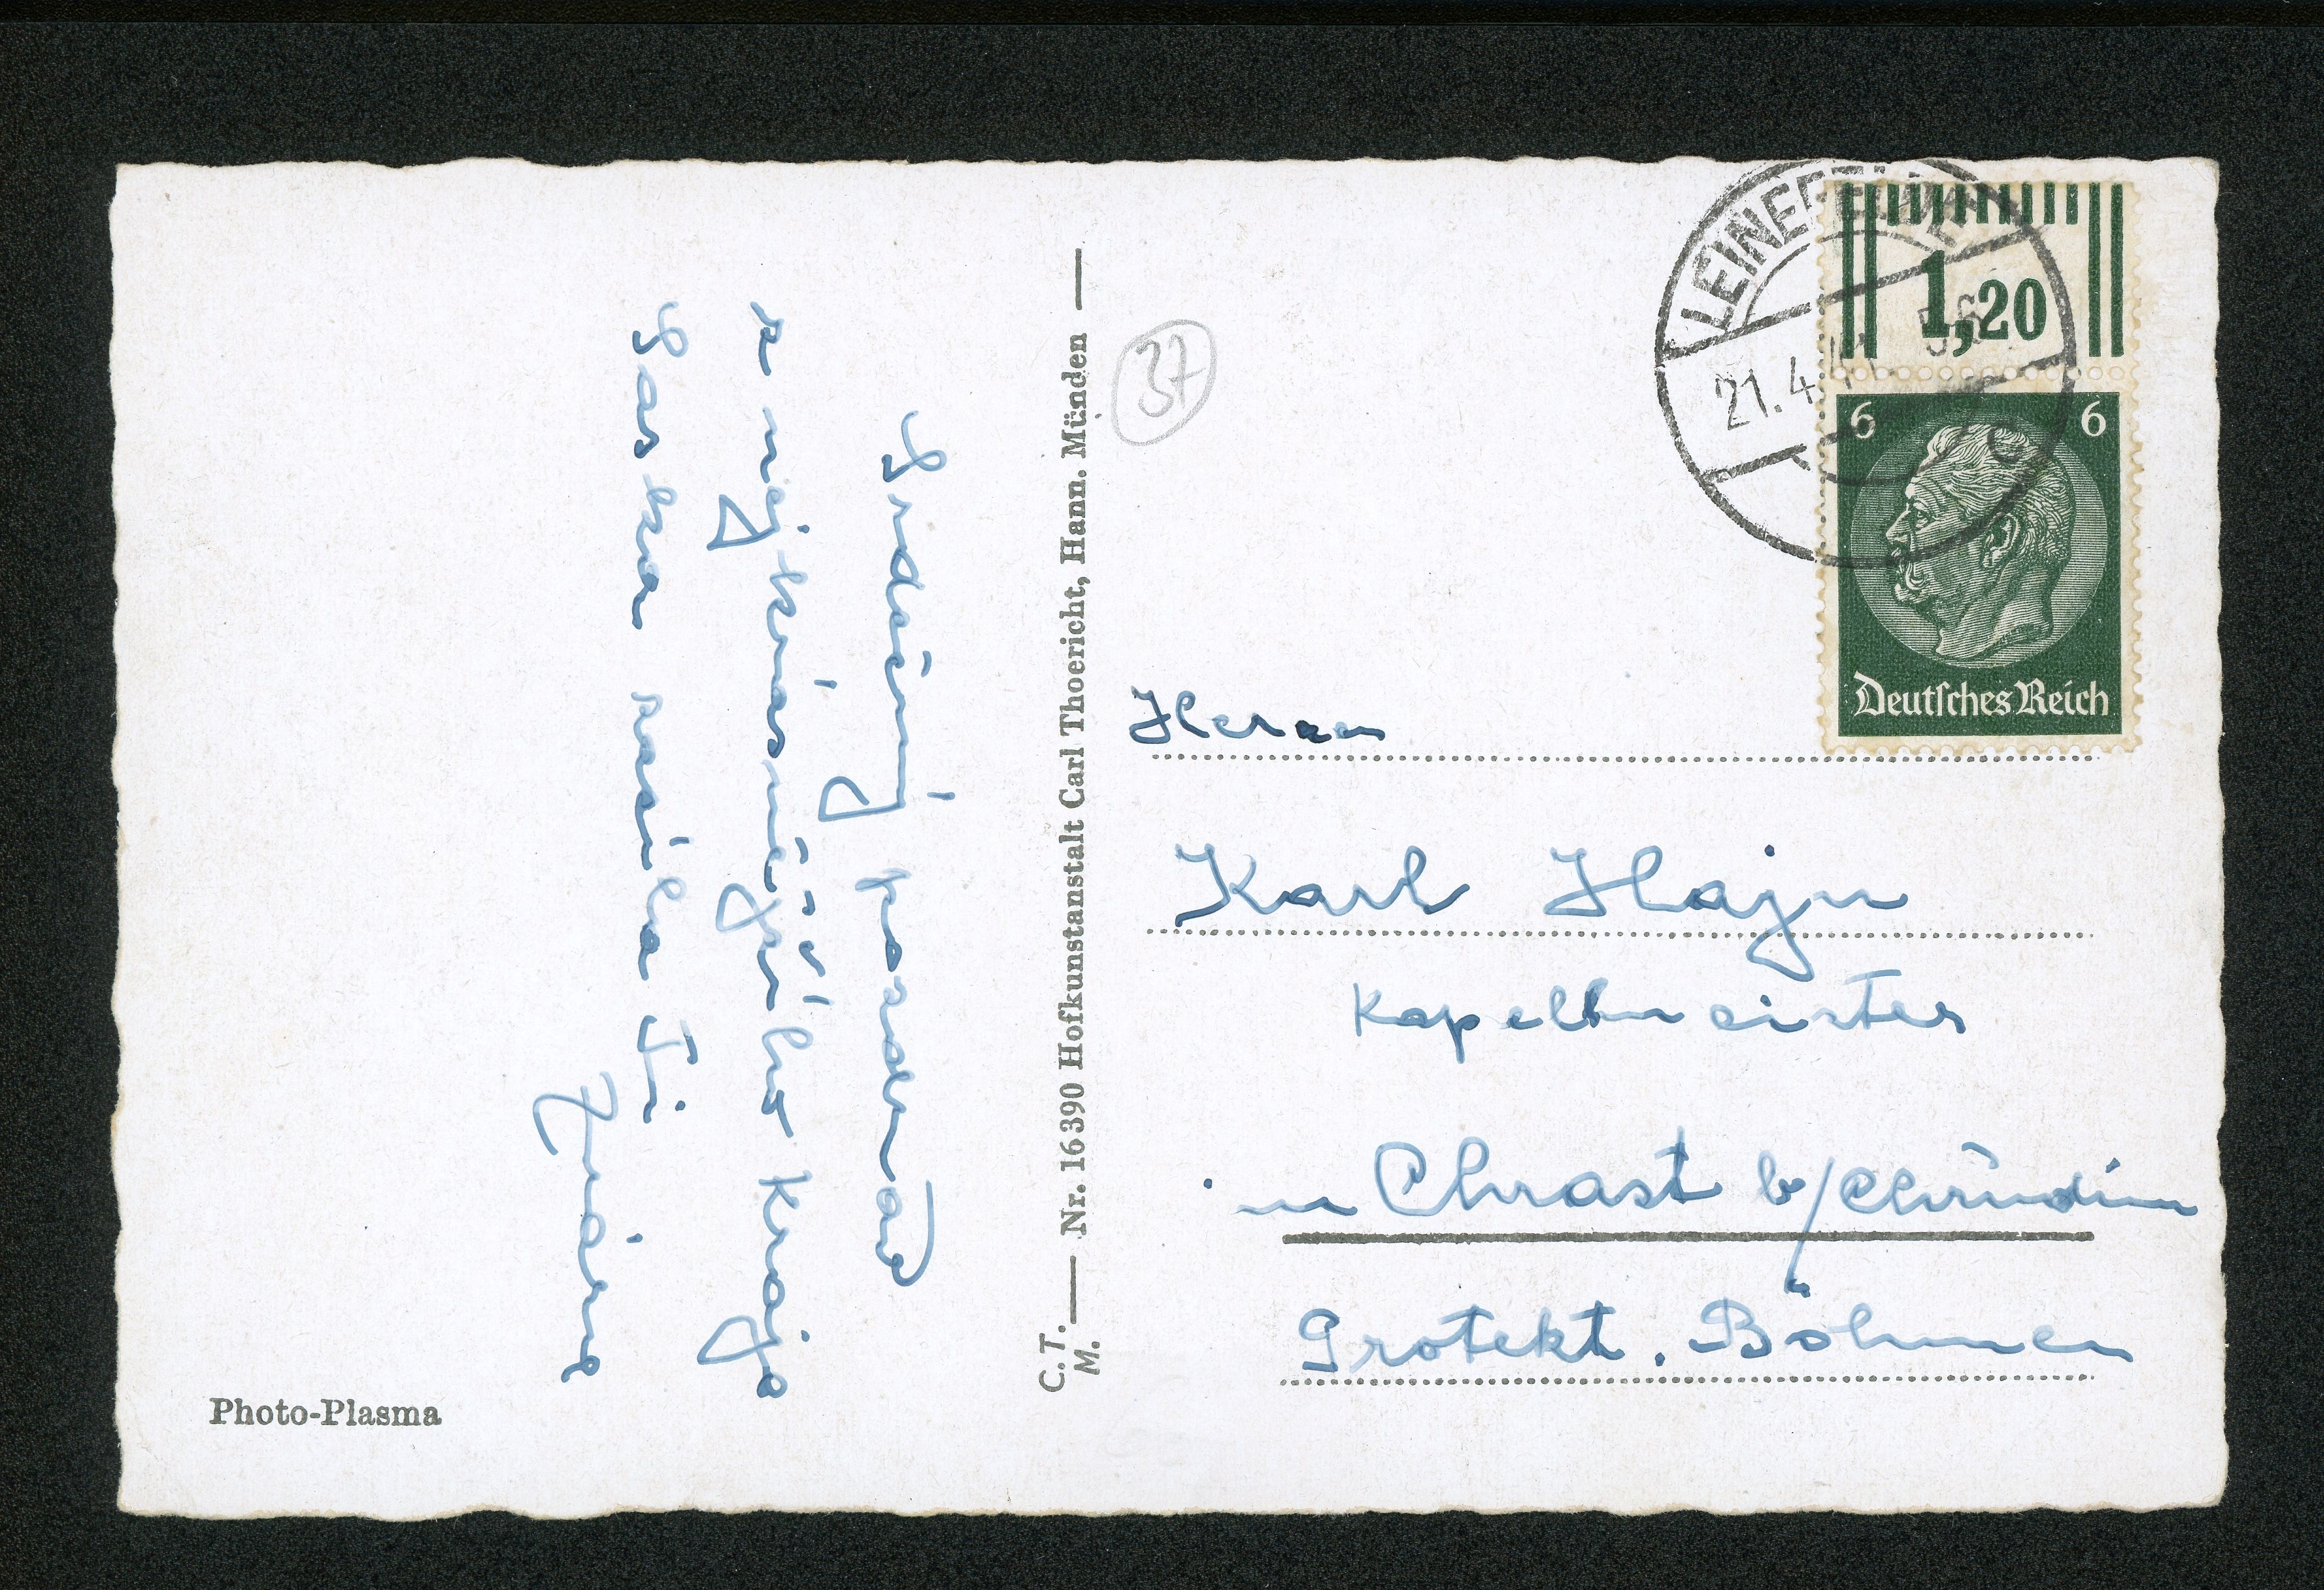 Srdečný pozdrav
z nejkrásnějšího kraje
Saska zasílá Ti
Photo-Plasma
C.T.M. Nr. 16390 Hofkunstanstalt Carl Thoericht, Hann. Münden
37
LEINEFELDE
21.4.41
1,20
6 6
Deutsches Reich
Herrn
Karl Hajn
Kapellmeister
in Chrast b/Chrudim
Protekt. Böhmen